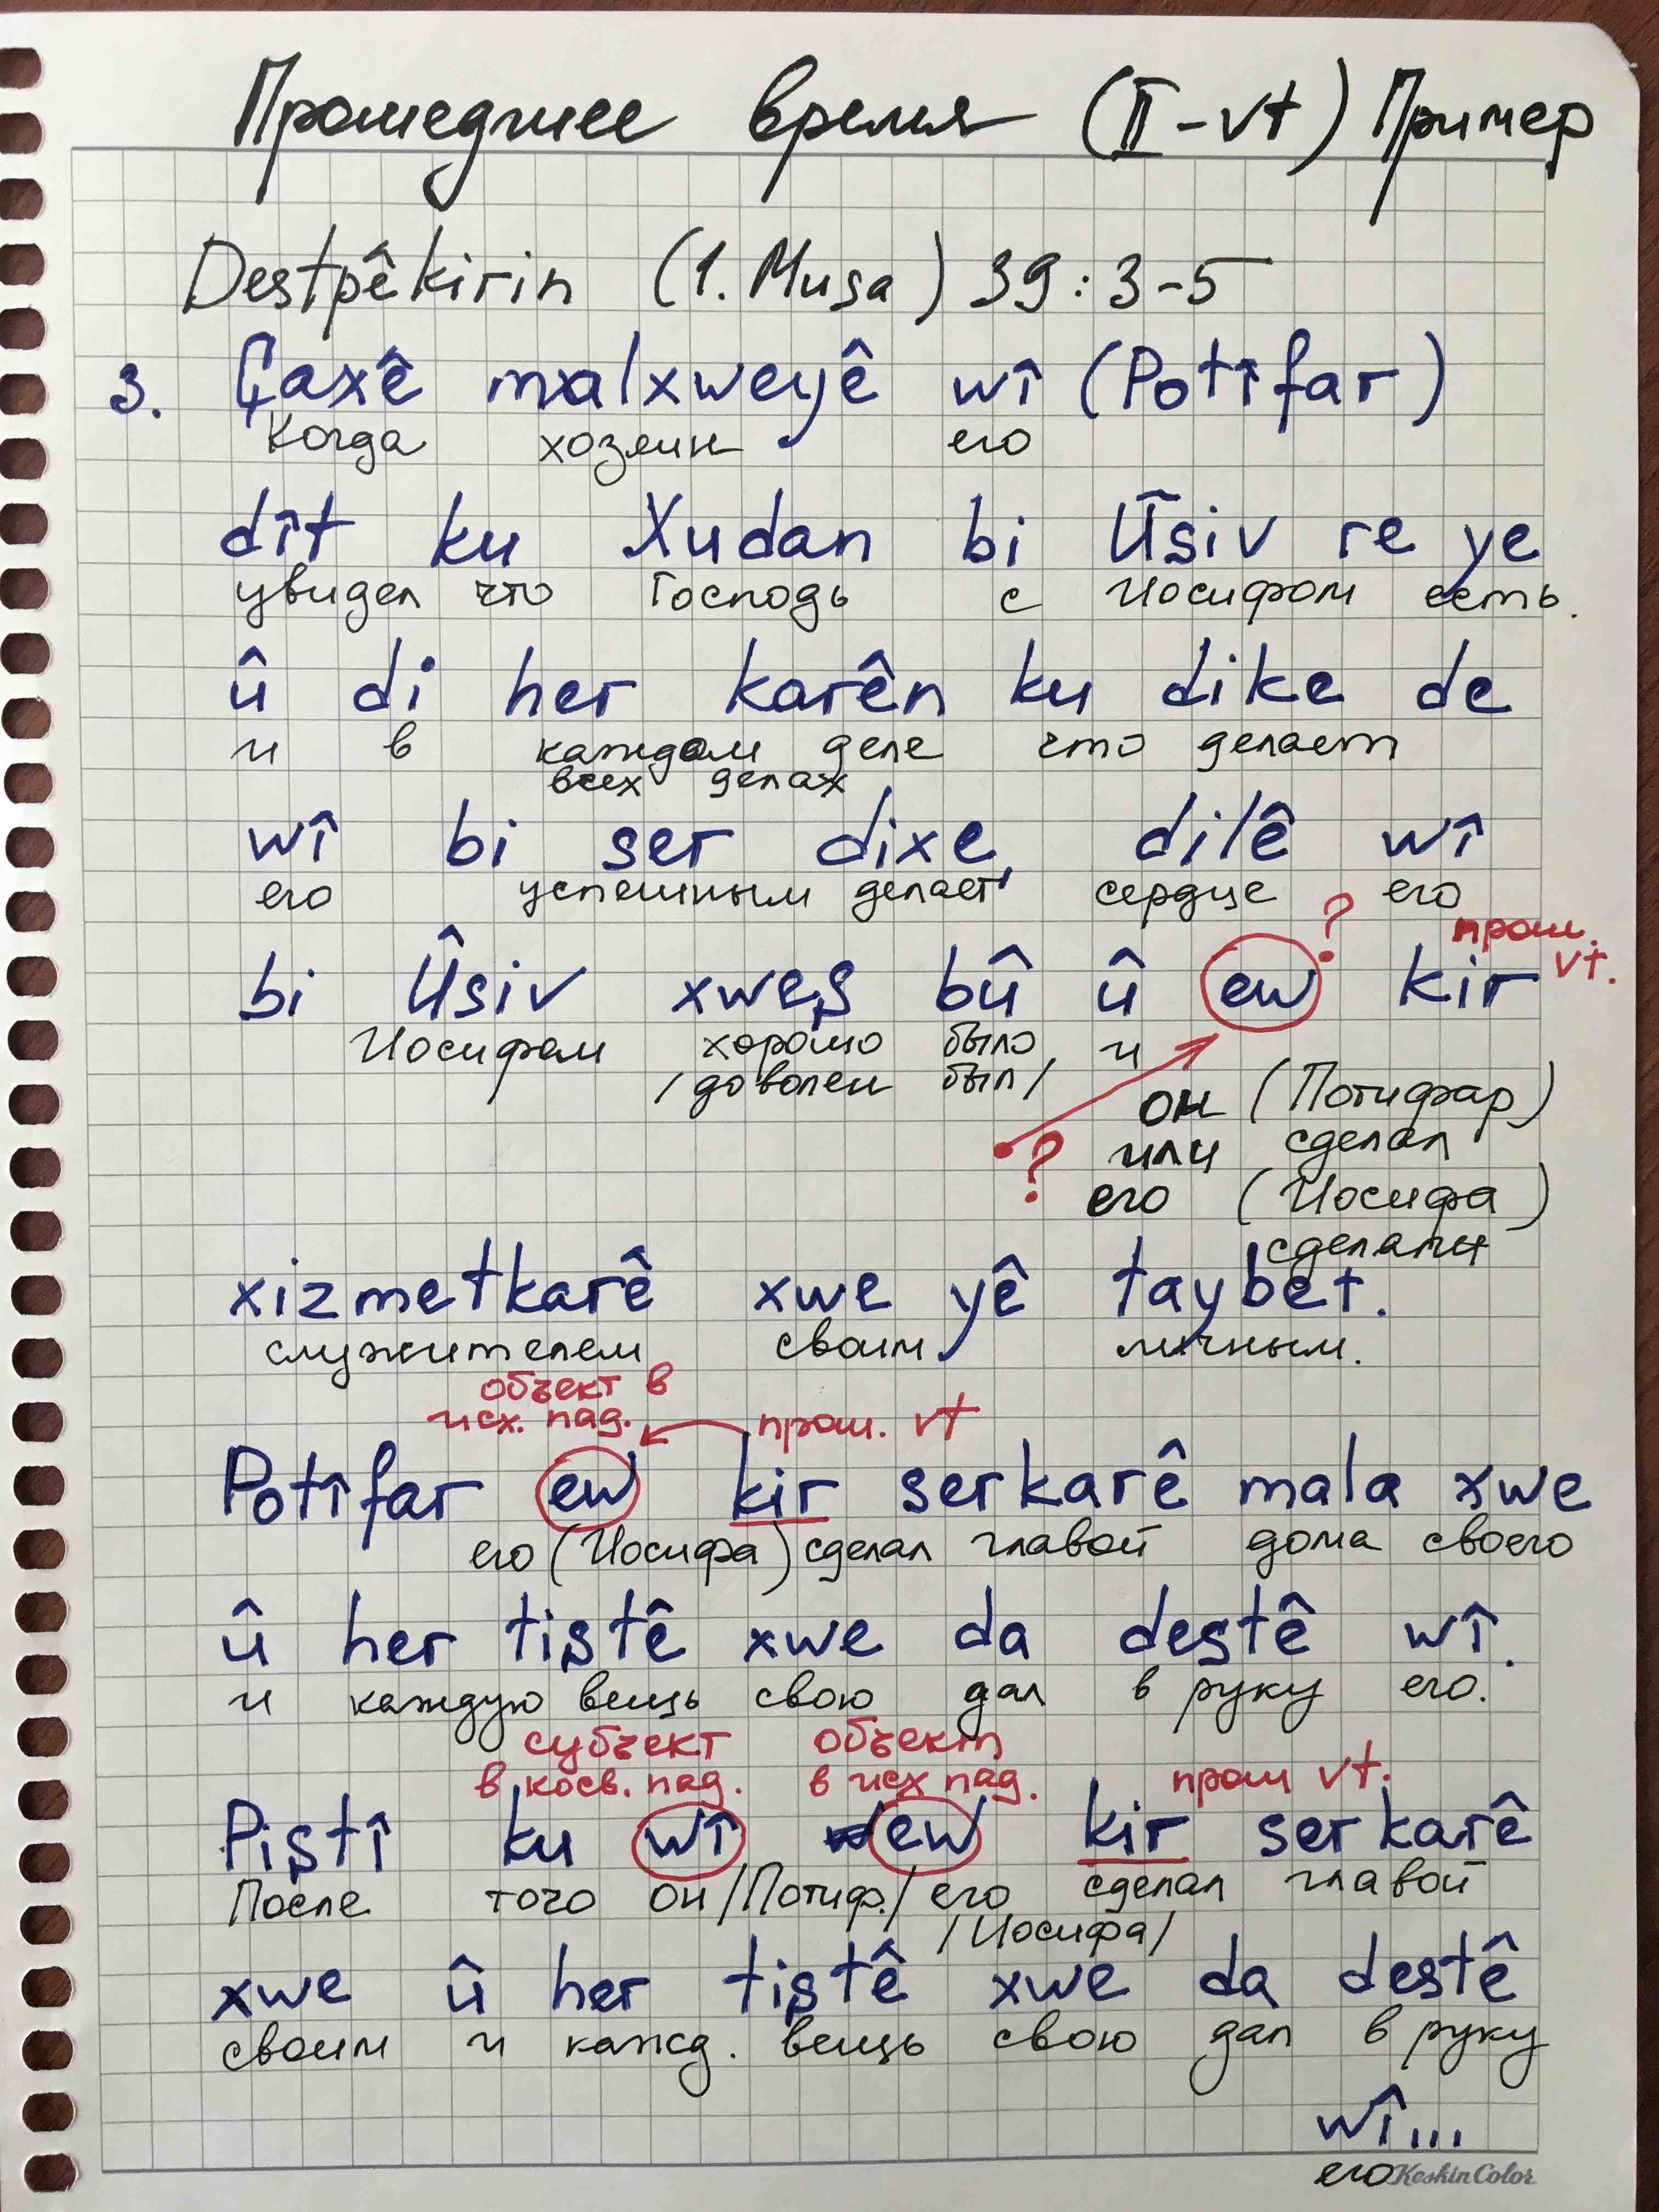 Прошедшее время (II-vt) Пример
Destpêkirin (1. Musa) 39:3-5
3. Çaxê malxweyê wî (Potîfar)
Когда хозяин его
dît ku Xudan bi Ûsiv re ye
увидел что Господь с Иосифом есть.
û di her karên ku dike de
и в каждом деле что делает
всех делах
wî bi ser dixe, dilê wî
его успешным делает, сердце его
? прош. vt.
bi Ûsiv xweş bû û ew kir
Иосифом хорошо было и
/доволен был/
он (Потифар)
? или сделал
его (Иосифа)
сделали
xizmetkarê xwe yê taybet.
служителем своим личным.
объект в
исх. пад. прош. vt
Potîfar ew kir serkarê mala xwe
его (Иосифа) сделал главой дома своего
û her tiştê xwe da destê wî.
и каждую вещь свою дал в руку его.
субъект объект
в косв. пад. в исх пад. прош vt.
Piştî ku wî ew kir serkarê
После того он /Потиф./ его сделал главой
/Иосифа/
xwe û her tiştê xwe da destê
своим и кажд. вещь свою дал в руку
wî...
его KeskinColor